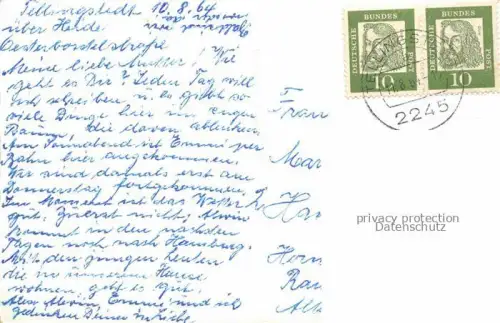 Tellingstedt 10.8.64
über Heide
Oesterborstelstraße
Meine liebe Mutter! Wie
geht es Dir? Jeden Tag will
ich schreiben u. es gibt so
viele Dinge hier im engen
Raum, die davon ablenken.
Am Sonnabend ist Emmi per
Bahn hier angekommen.
Wir sind damals erst am
Donnerstag fortgekommen.
Im Moment ist das Wetter
gut. Zuerst nicht. Alwin
kommt in den nächsten
Tagen noch nach Hamburg.
Mit den jungen Leuten
die in unserem Hause
wohnen, geht es gut.
Also Alwin, Emmi und ich
gedenken Deiner in Liebe
Frau
Mar
Ha
Herr
Ra
Alt
DEUTSCHE BUNDES POST 10
DEUTSCHE BUNDES POST 10
2245
privacy protection
Datenschutz